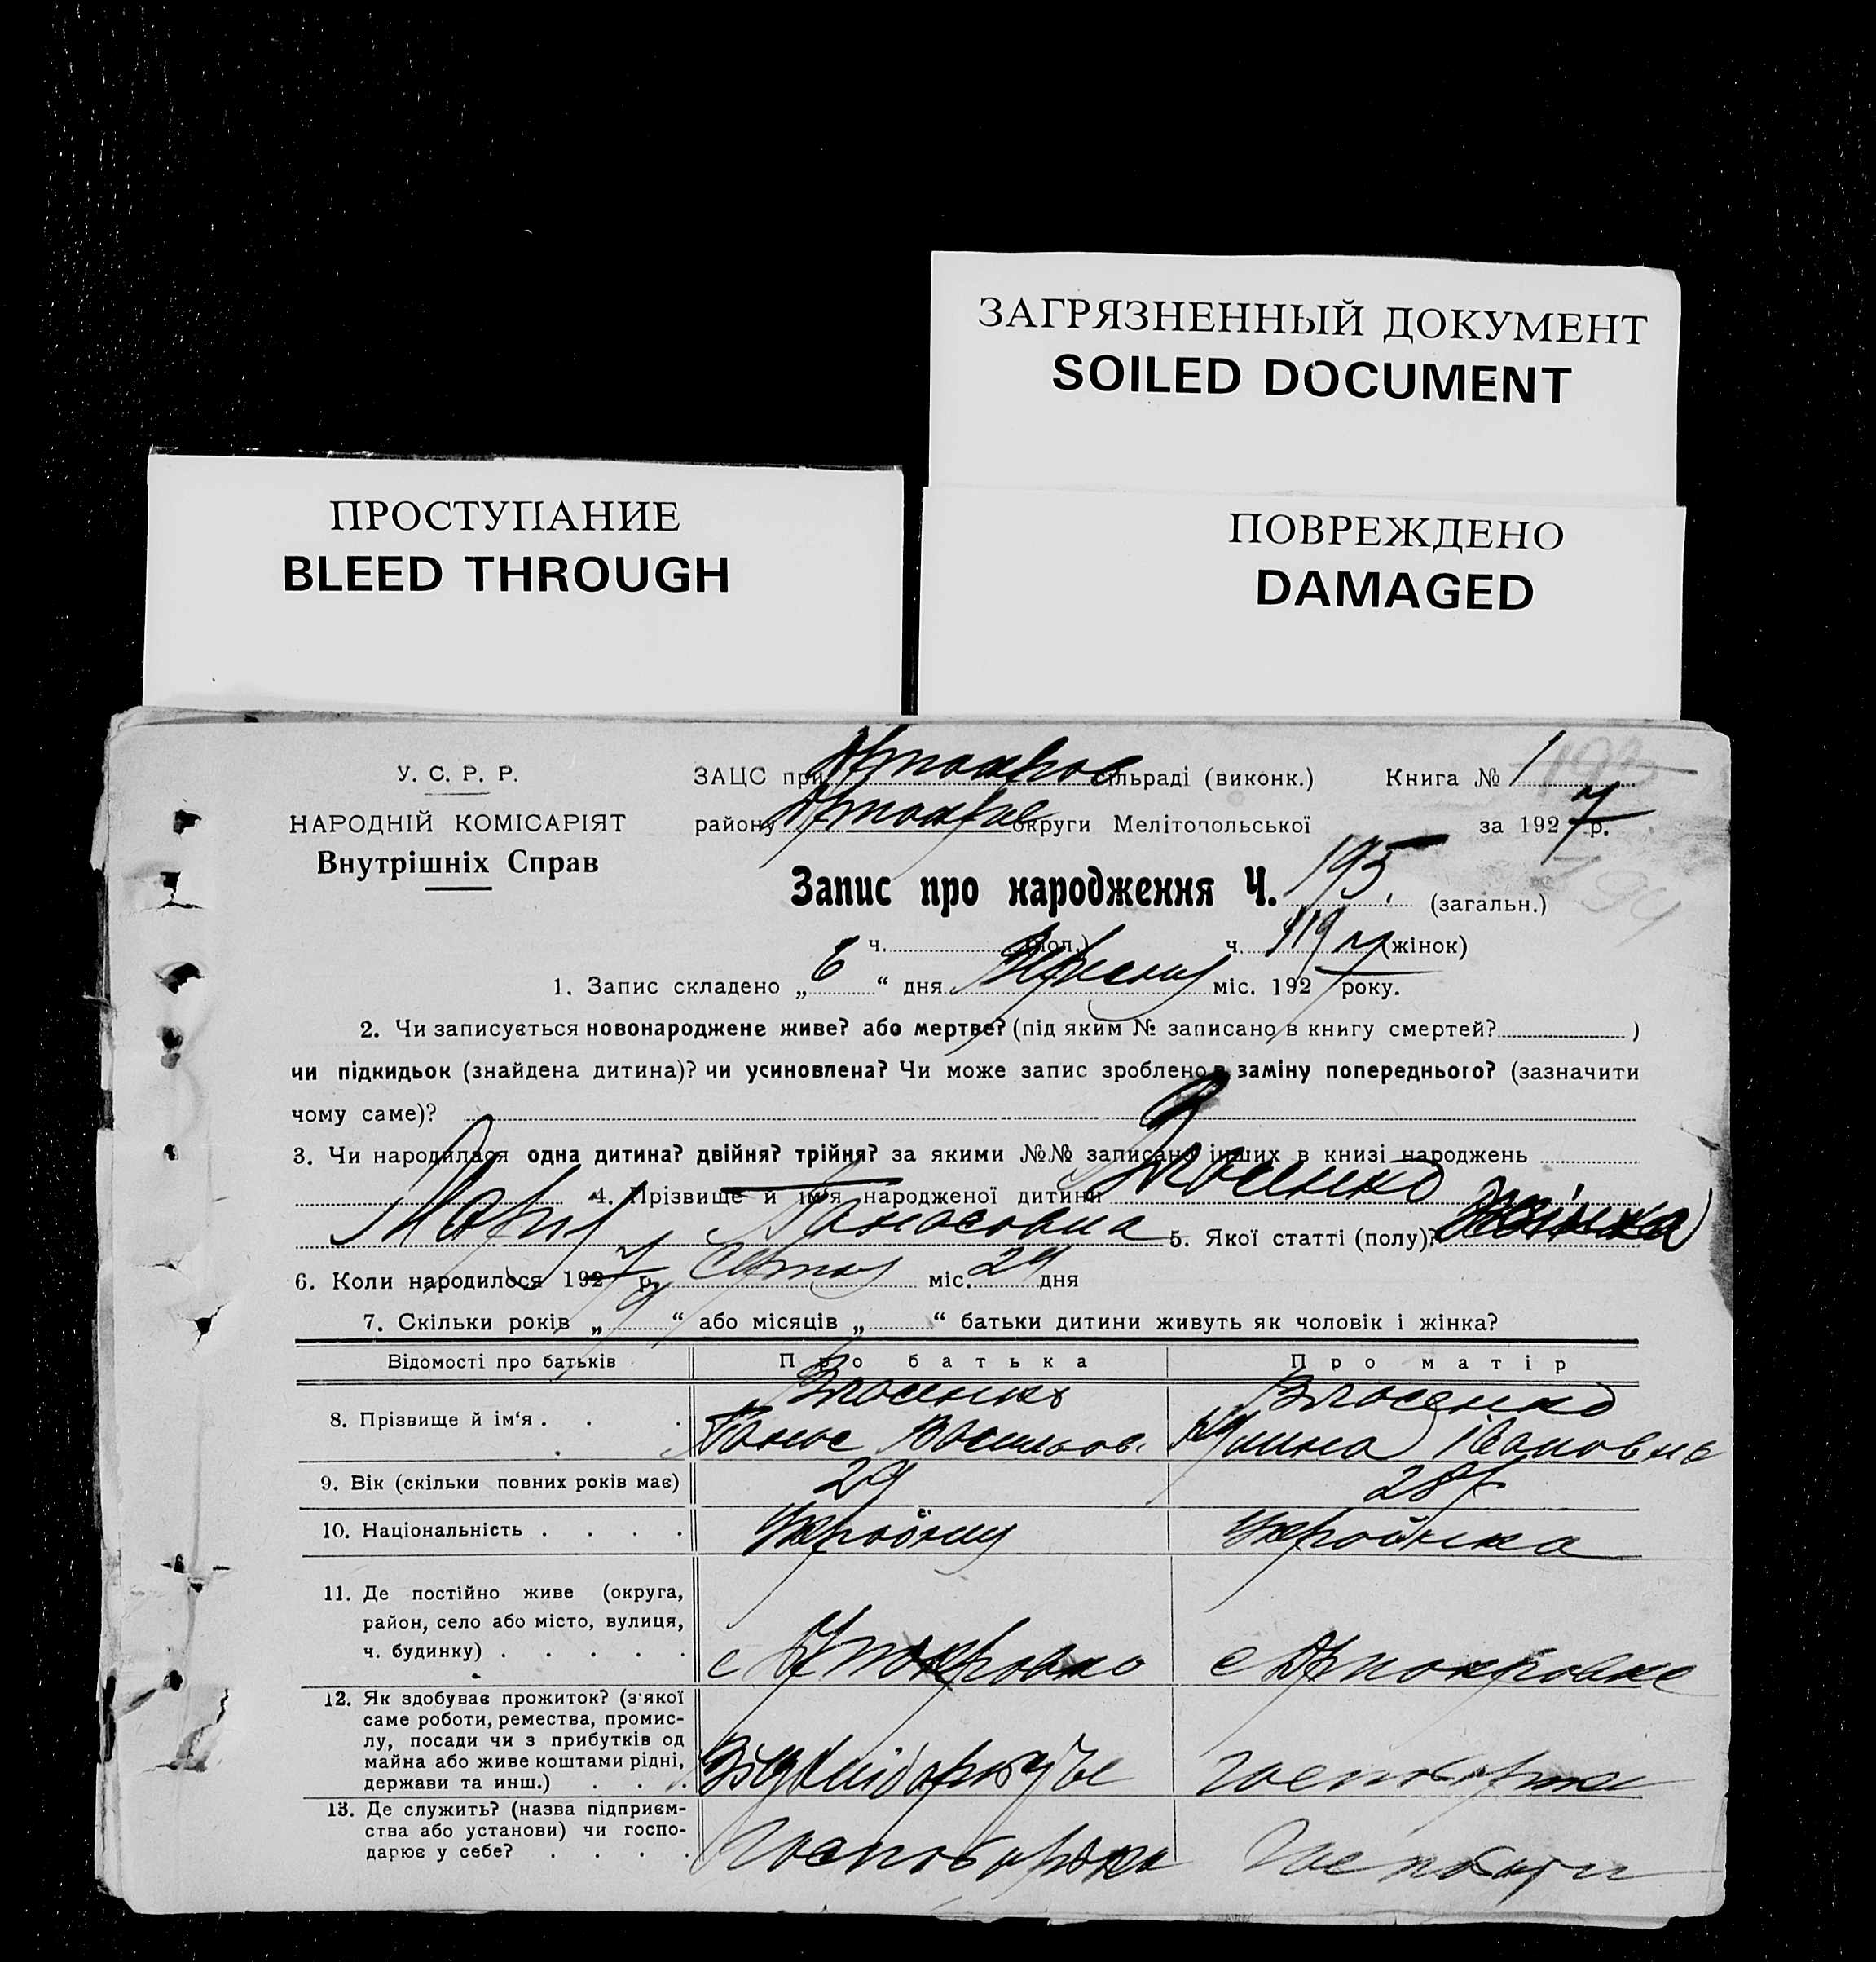 ЗАГРЯЗНЕННЫЙ ДОКУМЕНТ
SOILED DOCUMENT
ПРОСТУПАНИЕ
BLEED THROUGH
ПОВРЕЖДЕНО
DAMAGED
У. С. Р. Р.
НАРОДНІЙ КОМІСАРІЯТ
Внутрішніх Справ
ЗАЦС при сільраді (виконк.) Книга № 1 193
району округи Мелітопольської за 1927 р.
Запис про народження Ч. 195. (загальн.) 194
ч. (пол.) ч. 119 (жінок)
1. Запис складено „ 6 “ дня Вересня міс. 1927 року.
2. Чи записується новонароджене живе? або мертве? (під яким № записано в книгу смертей? )
чи підкидьок (знайдена дитина)? чи усиновлена? Чи може запис зроблено в заміну попереднього? (зазначити
чому саме)?
3. Чи народилася одна дитина? двійня? трійня? за якими №№ записано інших в книзі народжень
4. Прізвище й ім'я народженої дитини Власенко
Марія Панасовна 5. Якої статті (полу)? жінка
6. Коли народилося 1927 р. Серпня міс. 29 дня
7. Скільки років „ 9 “ або місяців „ “ батьки дитини живуть як чоловік і жінка?
Відомості про батьків Про батька Про матір
8. Прізвище й ім'я . . . Власенко Власенко
Панас Васильов. Івановна
9. Вік (скільки повних років має) 29 28
10. Національність . . . . Українец Українка
11. Де постійно живе (округа,
район, село або місто, вулиця,
ч. будинку) . . . . . с с
12. Як здобуває прожиток? (з'якої
саме роботи, ремества, промис-
лу, посади чи з прибутків од
майна або живе коштами рідні,
держави та инш.) . . .
13. Де служить? (назва підприєм-
ства або установи) чи госпо-
дарює у себе? . . . .